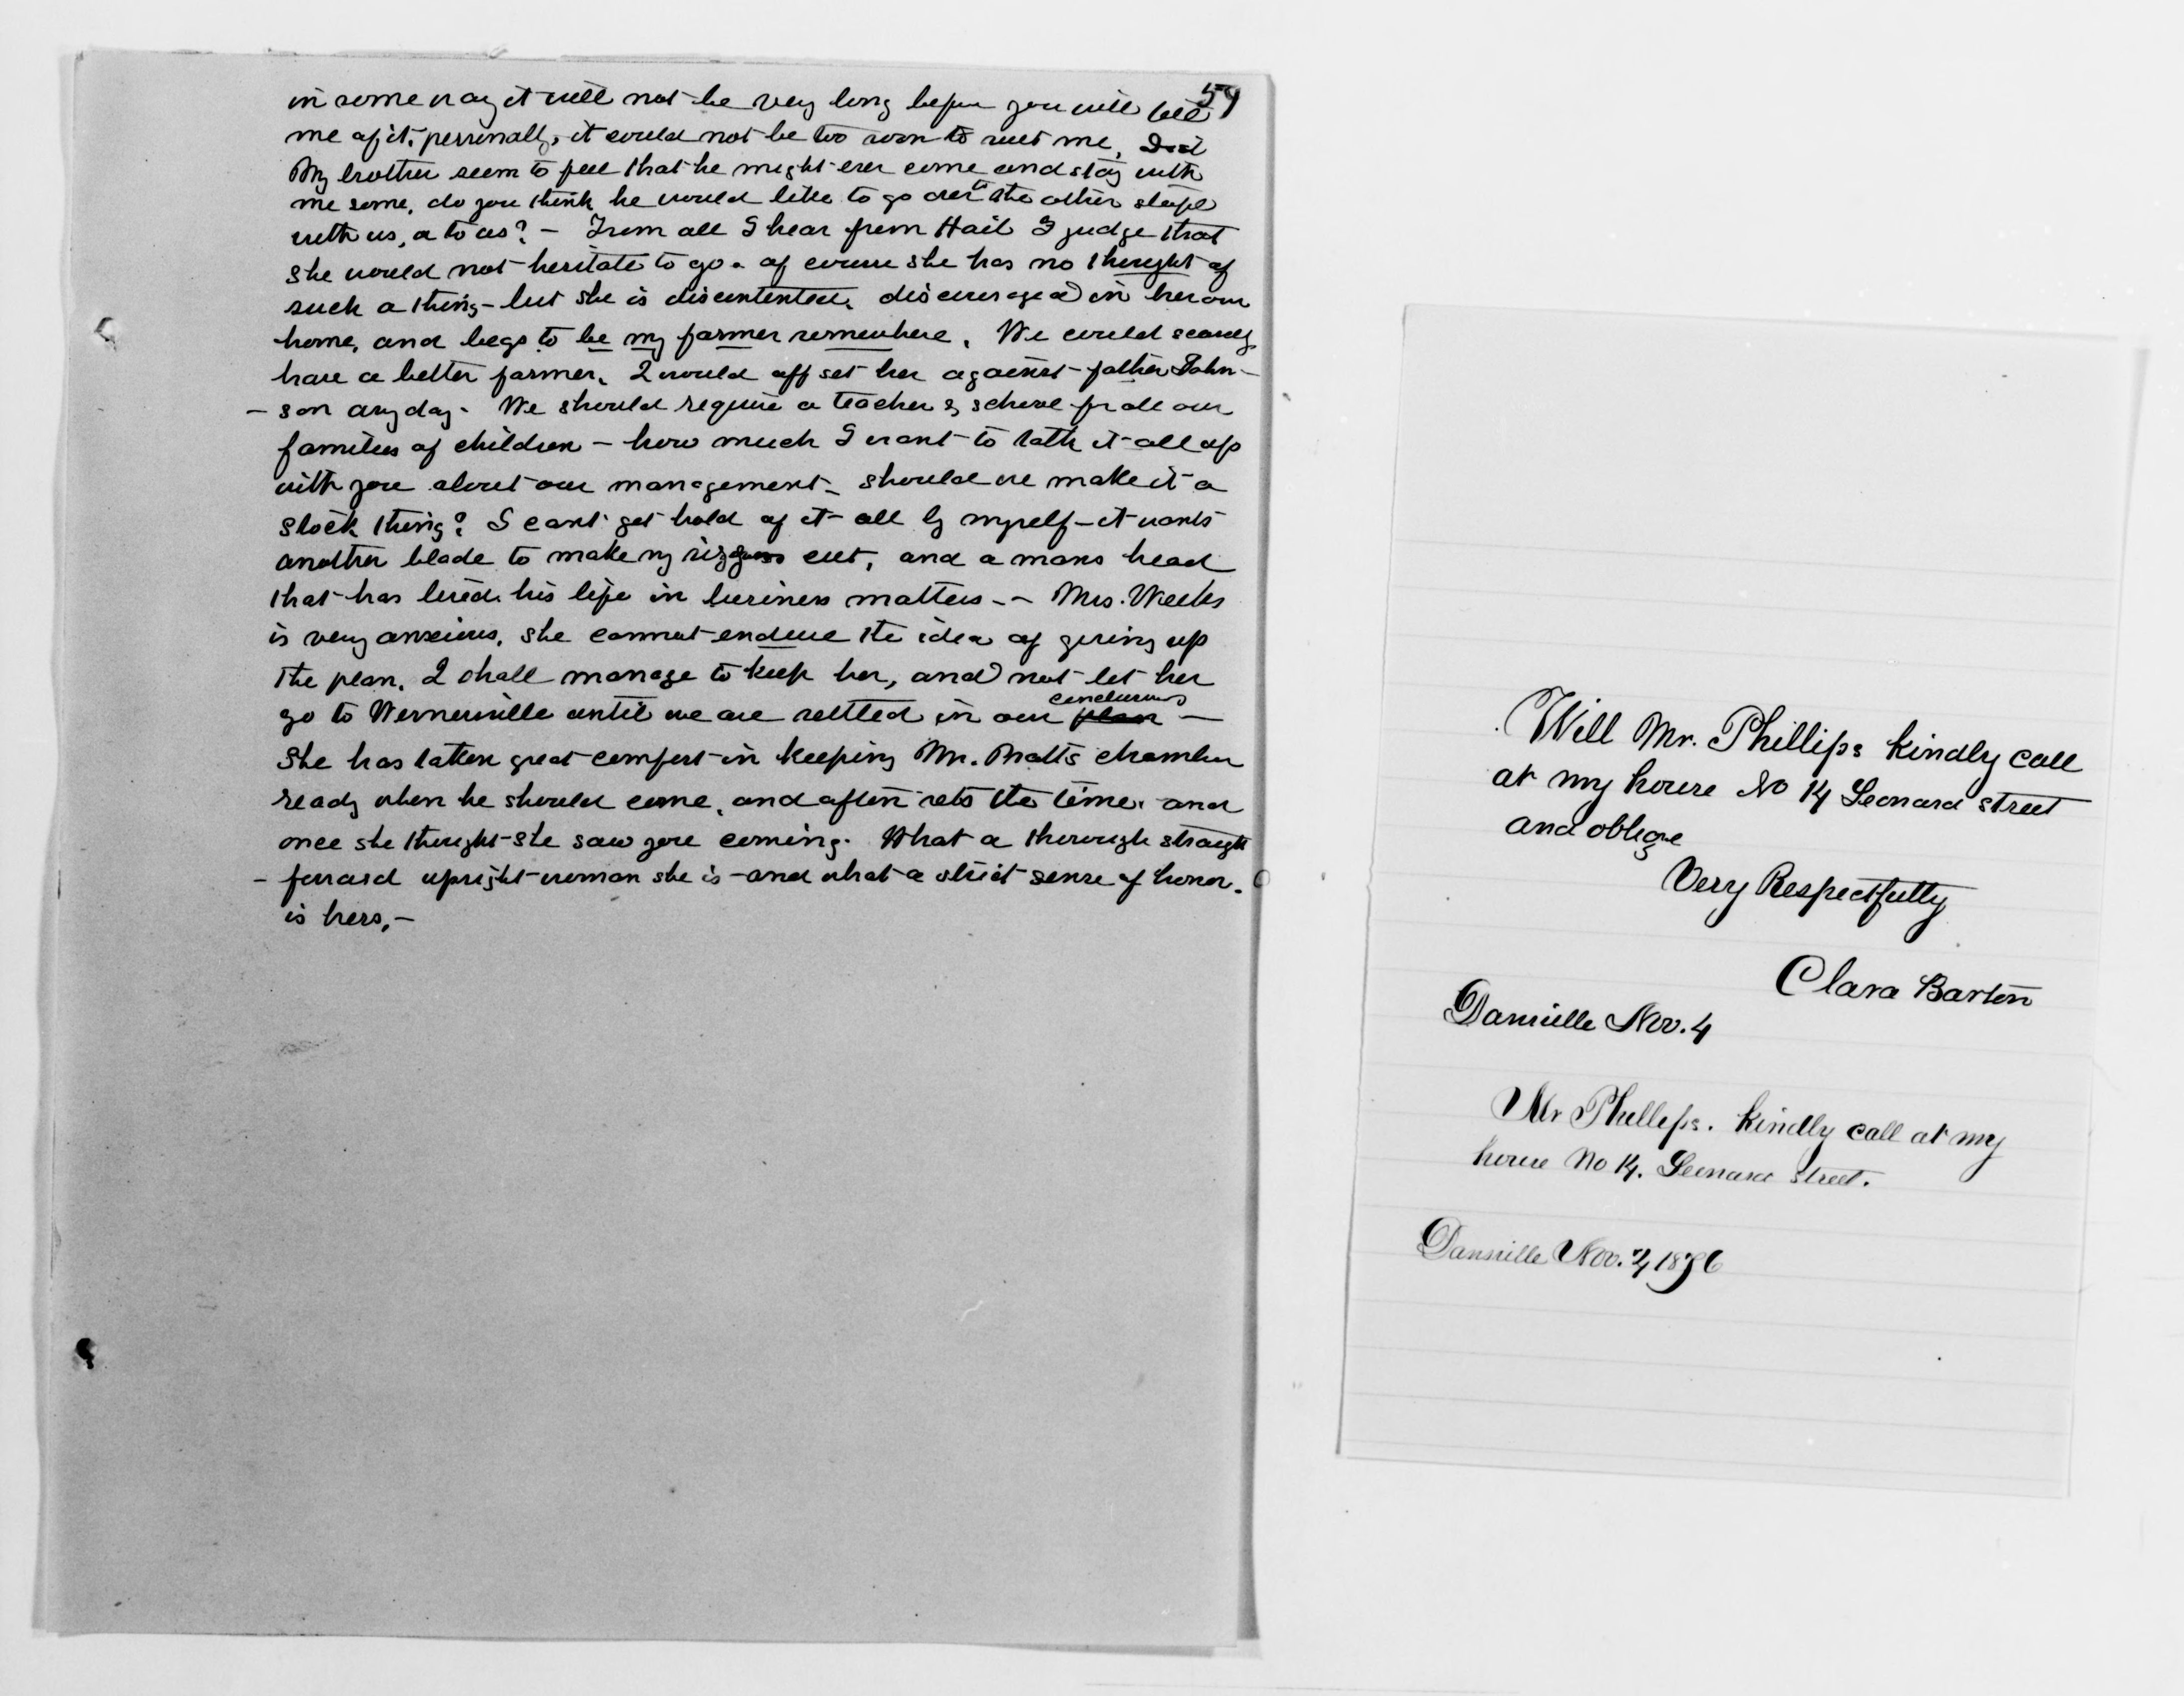 59
in some way it will not be very long before you will tell
me of it. personally, it could not be too soon to suit me, Did
My brother seem to feel that he might ever come and stay with
me some, do you think he would like to go over to the other slope
with us, or to us? — From all I hear from I judge that
she would not hesitate to go. of course she has no thought of
such a thing – but she is discontented, discouraged in her own
home, and begs to be my farmer somewhere. We could scarcely
have a better farmer, I would off set her against father John-
- son any day. We should require a teacher & school for all our
families of children – how much I want to talk it all up
with you about our management – should we make it a
stock thing? I cant get hold of it all by myself – it wants
another blade to make my sizzors cut, and a mans head
that has lived his life in business matters – – Mrs. Weeks
is very anxious, she cannot endure the idea of giving up
the plan. I shall manage to keep her, and not let her
conclusions
go to Wernersville until we are settled in our plan —
She has taken great comfort in keeping Mr. chamber
ready when he should come, and often sets the time. and
once she thought she saw you coming. What a thorough straight
- forward upright woman she is – and what a strict sense of honor.
is hers, –
Will Mr. Phillips kindly call
at my house No 14 Leonard street
and oblige
Very Respectfully
Clara Barton
Dansville Nov. 4
Mr Phillips. kindly call at my
house No 14. Leonard street.
Dansville Nov. 4 1876